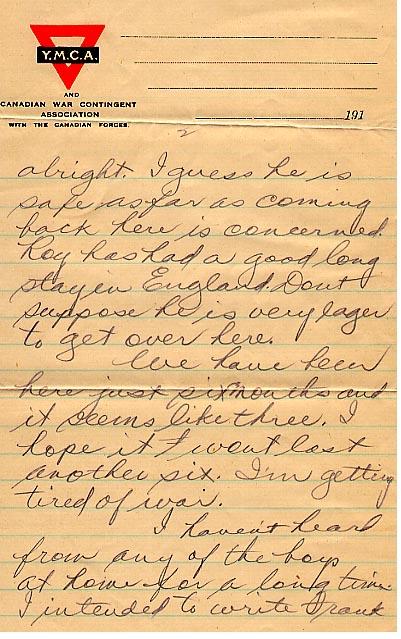 Y.M.C.A.
AND
CANADIAN WAR CONTINGENT
ASSOCIATION
WITH THE CANADIAN FORCES.
191
2
alright. I guess he is
safe as far as coming
back here is concerned.
Roy has had a good long
stay in England. Dont
suppose he is very eager
to get over here.
We have been
here just six months and
it seems like three. I
hope it wont last
another six. I'm getting
tired of war.
I havent heard
from any of the boys
at home for a long time.
I intended to write Frank